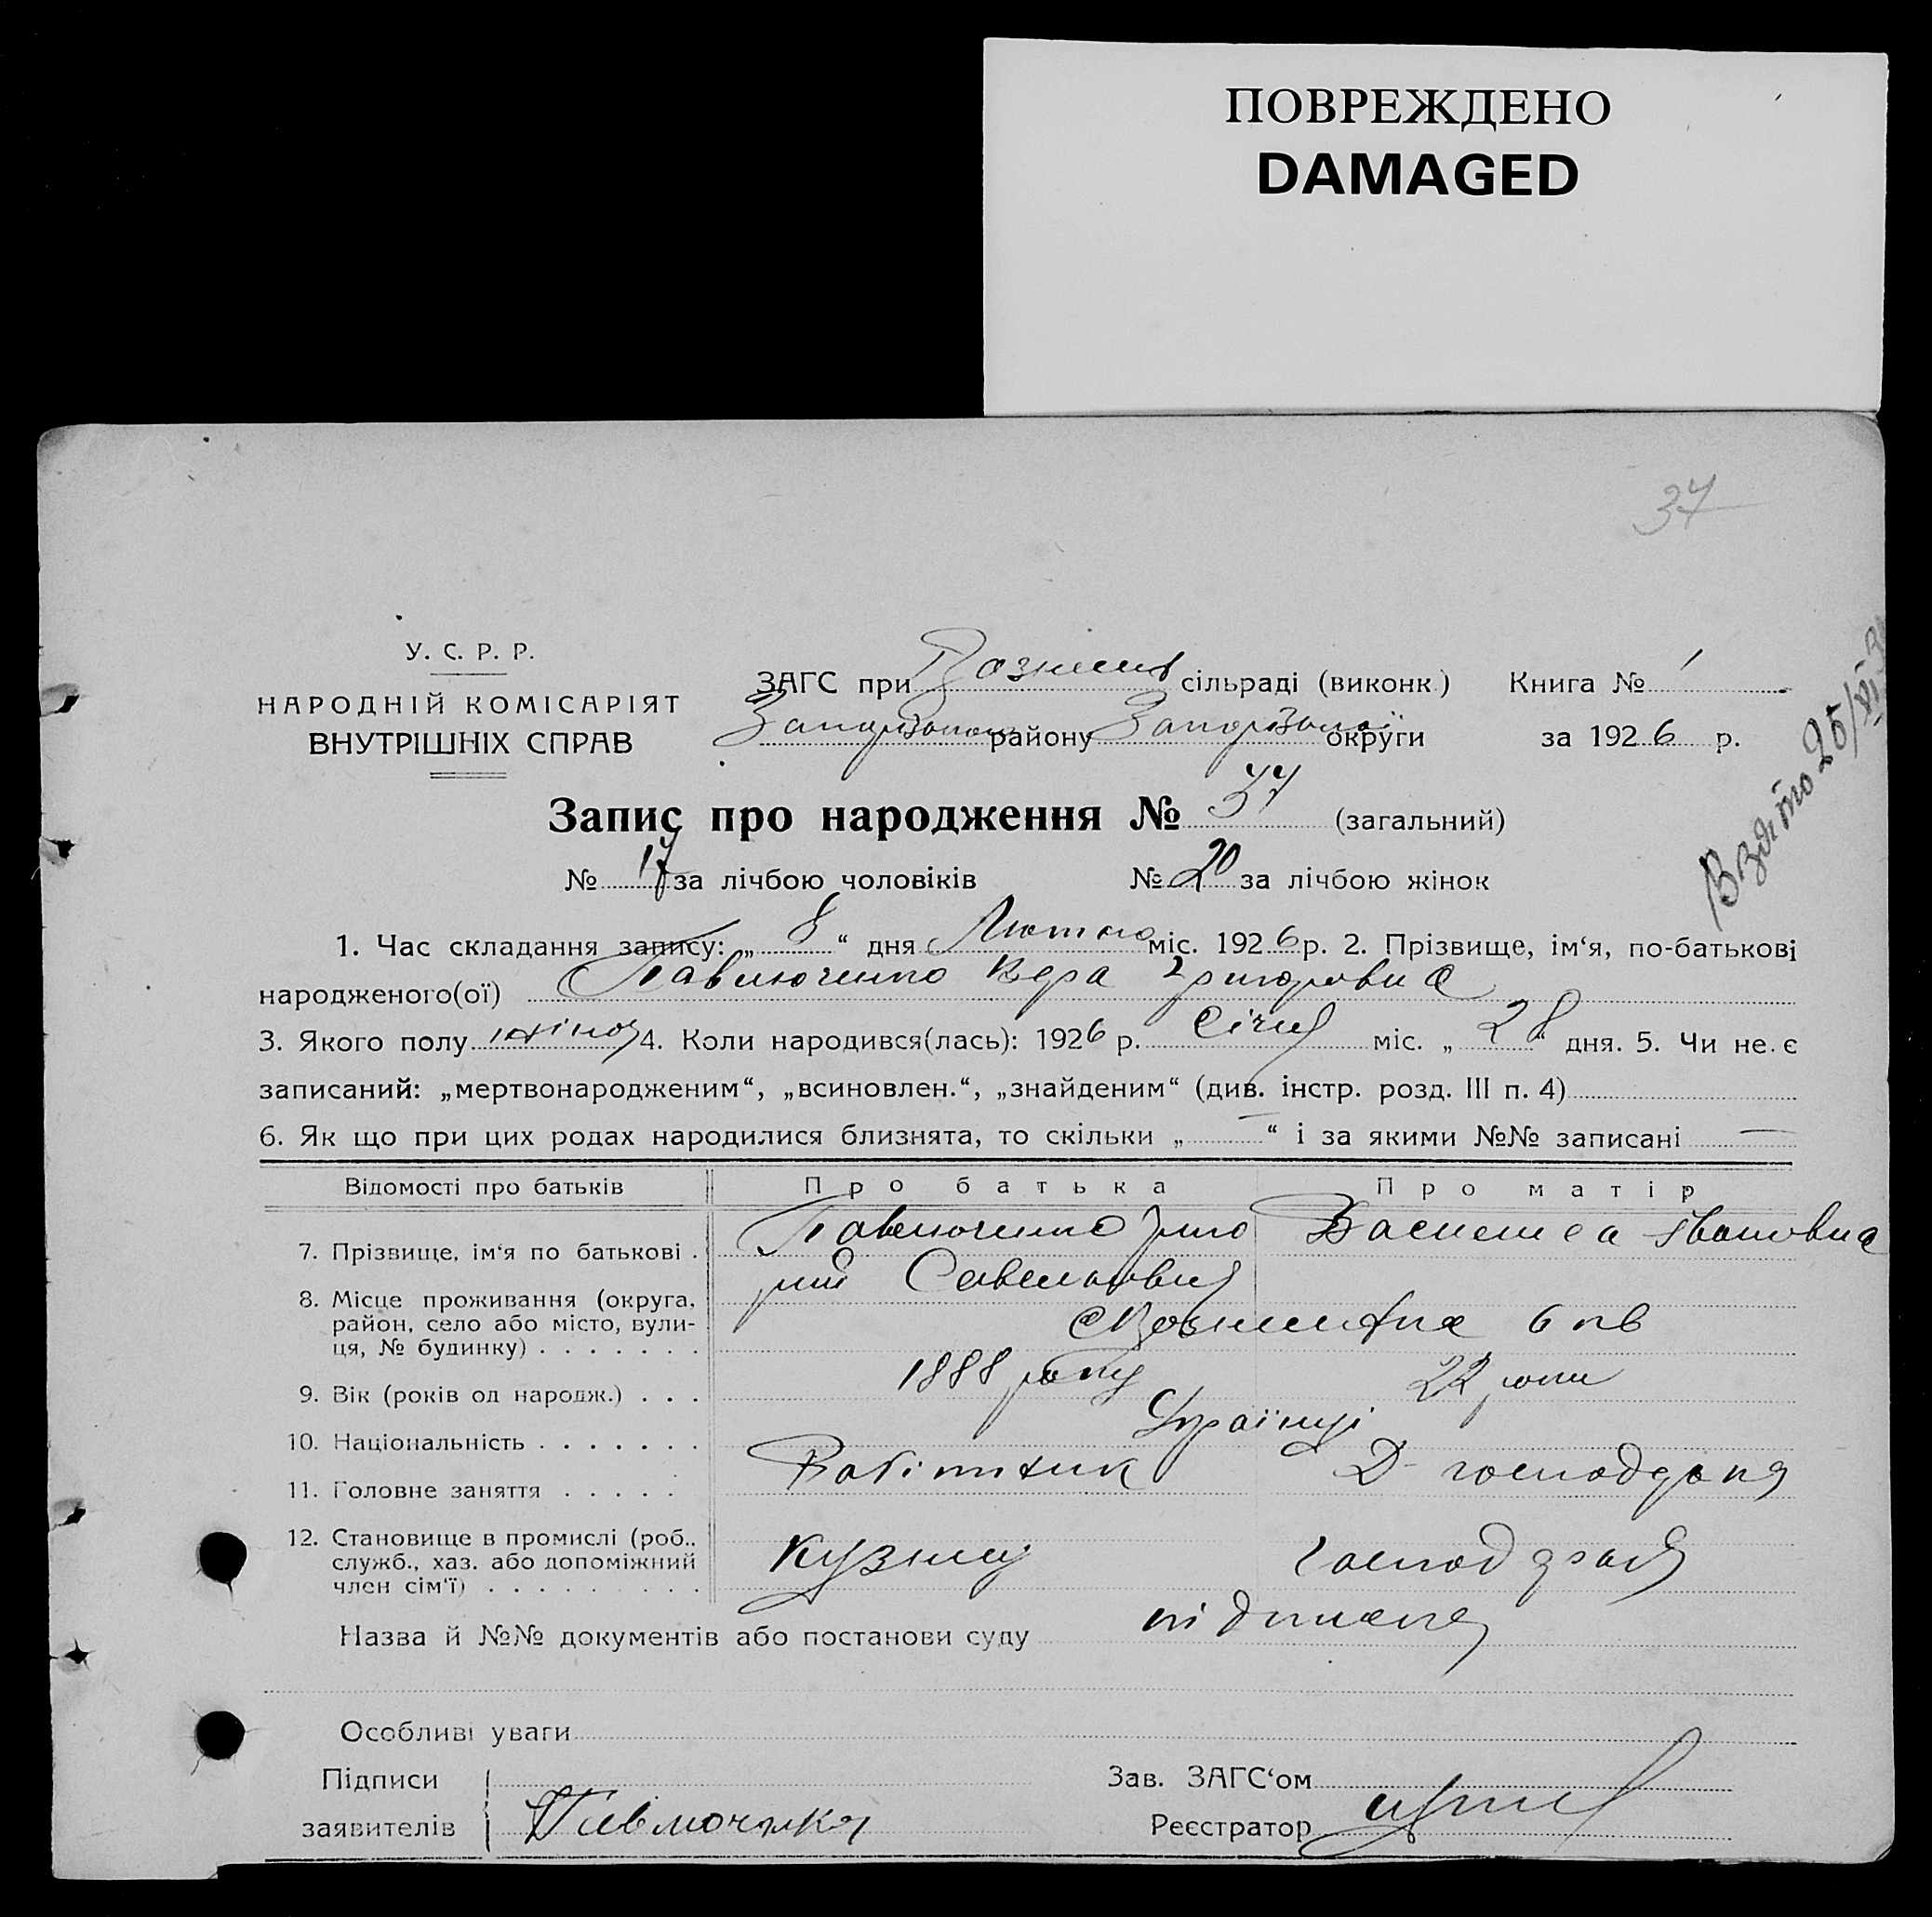 ПОВРЕЖДЕНО
DAMAGED
37
У. С. Р. Р.
НАРОДНІЙ КОМІСАРІЯТ
ВНУТРІШНІХ СПРАВ
ЗАГС при Вознесен сільраді (виконк.) Книга № 1
Запорізького району Запорізької округи за 1926 р.
Взято 25/VI
Запис про народження № 37 (загальний)
№ 17 за лічбою чоловіків № 20 за лічбою жінок
1. Час складання запису: „ 8 “ дня Лютого міс. 1926 р. 2. Прізвище, ім‘я, по-батькові
народженого(ої) Павлюченко Вера Григоровна
3. Якого полу жіноч 4. Коли народився(лась): 1926 р. Січня міс. „ 28 “ дня. 5. Чи не є
записаний: „мертвонародженим“, „всиновлен.“, „знайденим“ (див. інстр. розд. III п. 4)
6. Як що при цих родах народилися близнята, то скільки „ — “ і за якими №№ записані —
Відомості про батьків Про батька Про матір
7. Прізвище, ім‘я по батькові . Павлюченко Григо Василиса Івановна
рий Савельович
8. Місце проживання (округа,
район, село або місто, вули-
ця, № будинку) . . . . . . .
9. Вік (років од народж.) . . . 1888 року 22 роки
10. Національність . . . . . . . Українці
11. Головне заняття . . . . . Робітник Д- господарка
12. Становище в промислі (роб.,
служб., хаз. або допоміжний
член сім‘ї) . . . . . . . . . кузнец
Назва й №№ документів або постанови суду
Особливі уваги
Підписи Зав. ЗАГС‘ом
заявителів Павлюченко Реєстратор